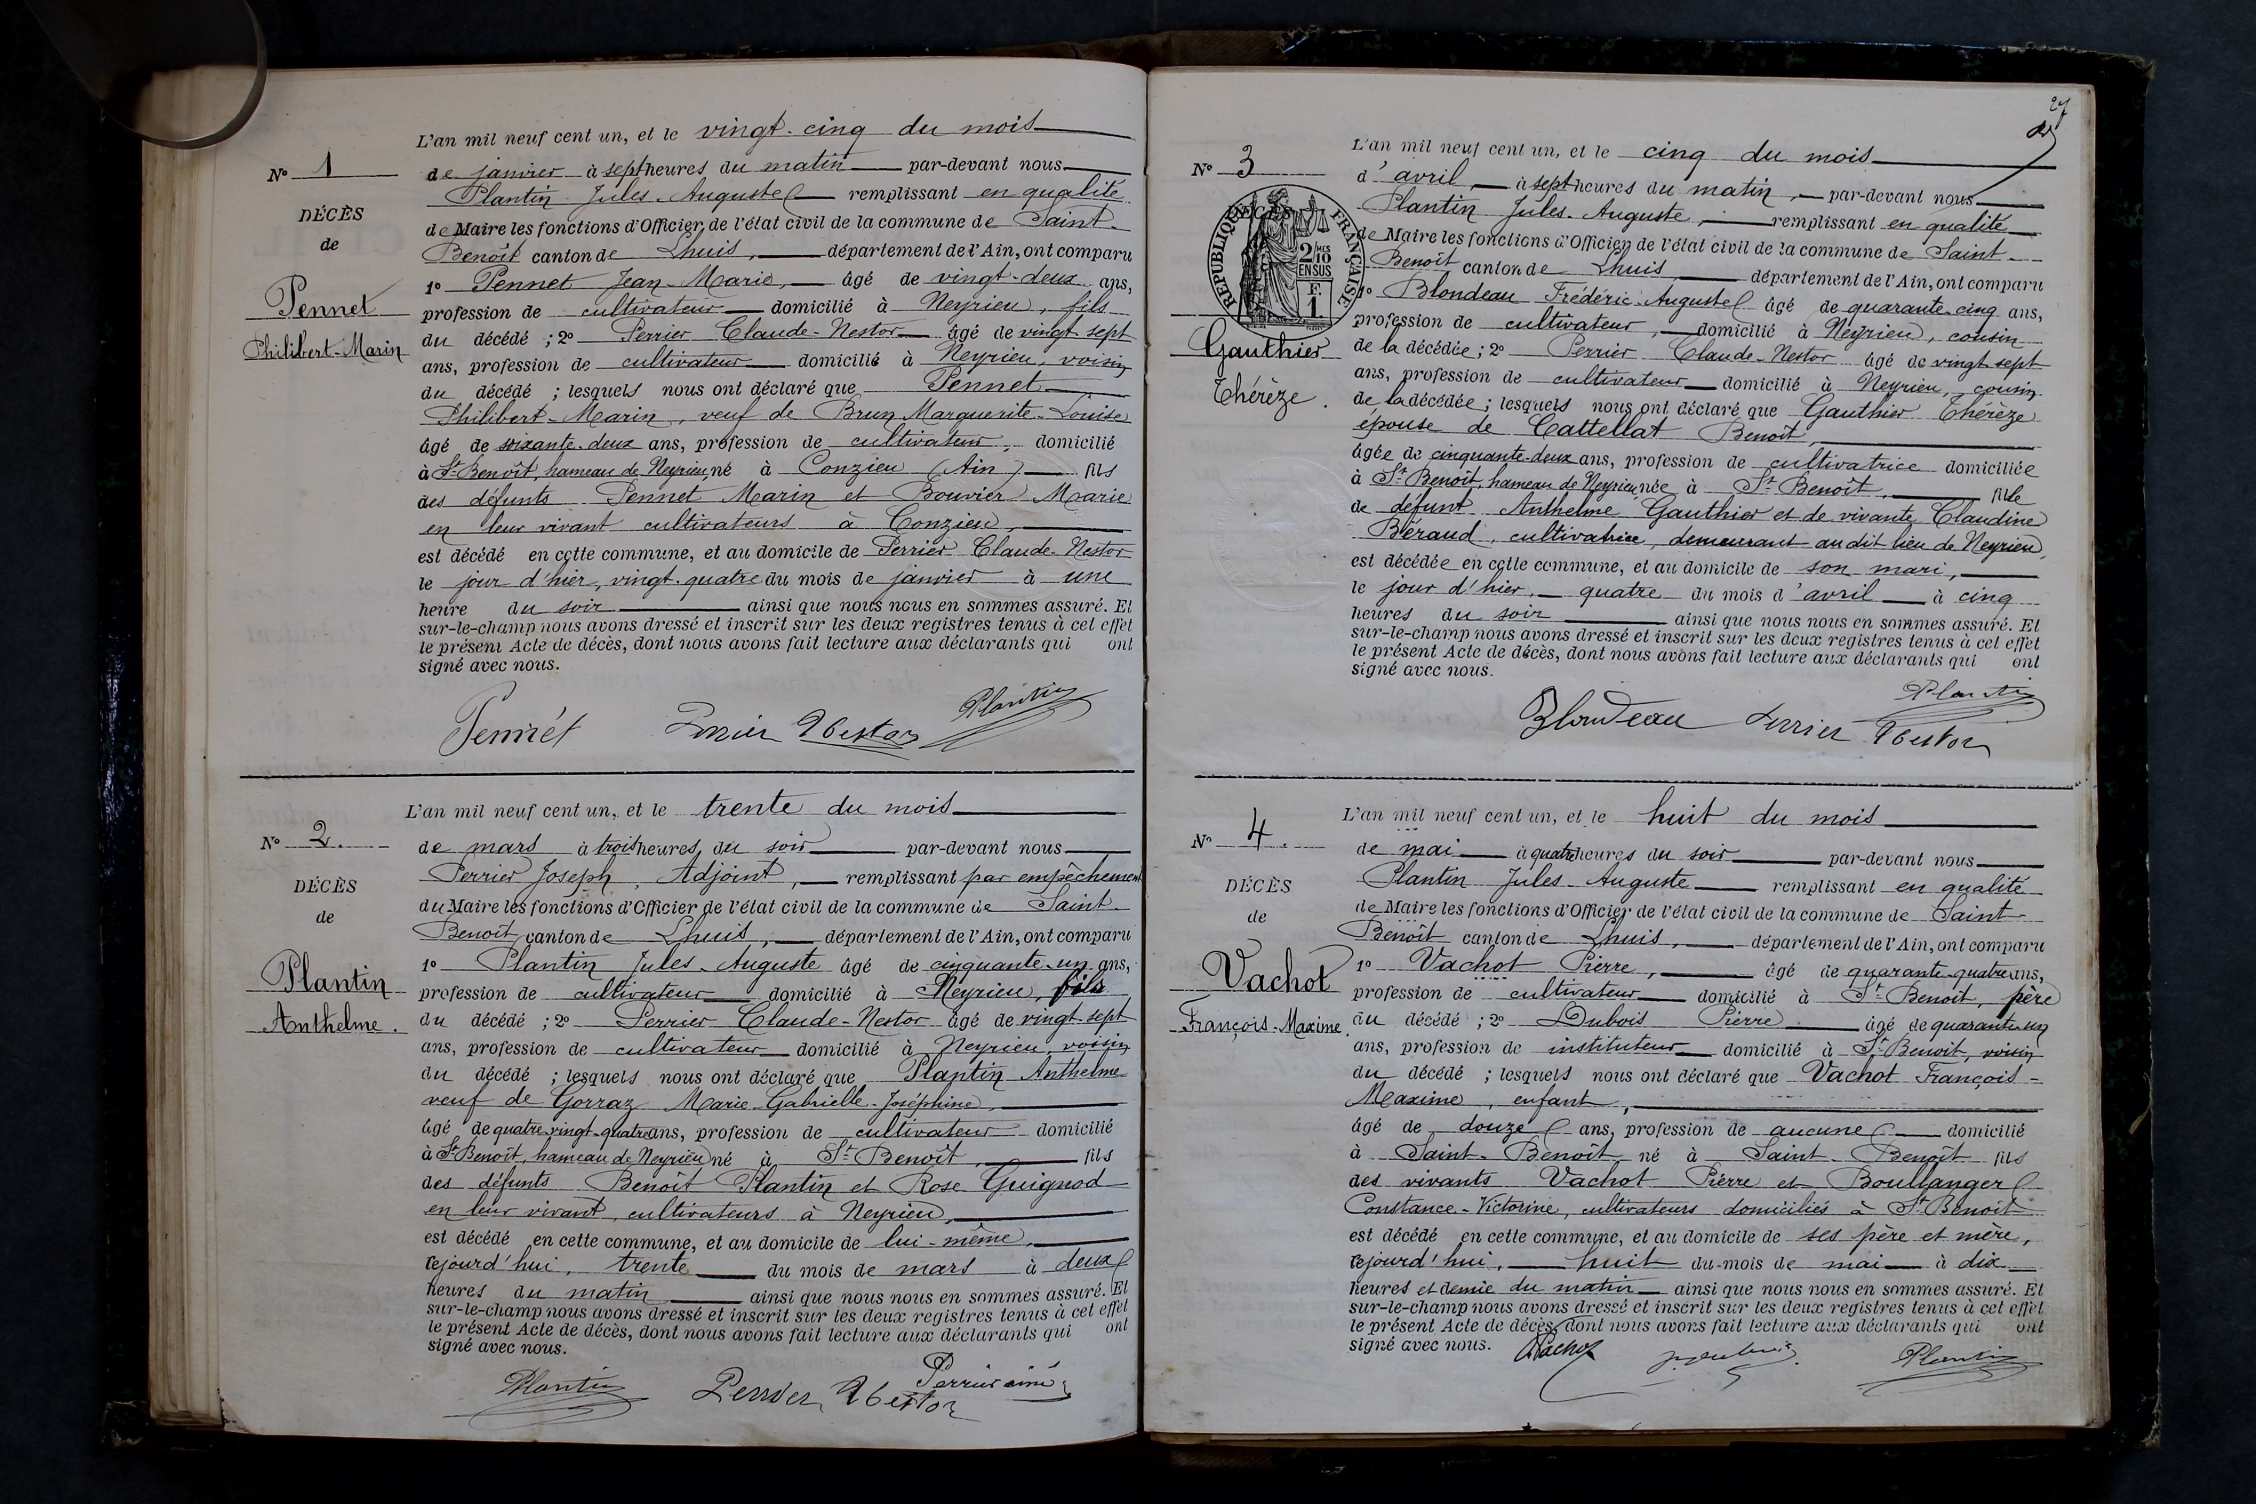 N° 1
DÉCÈS
de
Pennet
Philibert-Marin
L'an mil neuf cent un, et le vingt-cinq du mois
de janvier à sept heures du matin par-devant nous
Plantin Jules-Auguste remplissant en qualité
de Maire les fonctions d'Officier de l'état civil de la commune de Saint-
Benoît canton de Lhuis, département de l'Ain, ont comparu
1° Pennet Jean-Marie, âgé de vingt-deux ans,
profession de cultivateur domicilié à Neyrieu, fils
du décédé ; 2° Perrier Claude-Nestor âgé de vingt-sept
ans, profession de cultivateur domicilié à Neyrieu, voisin
du décédé ; lesquels nous ont déclaré que Pennet
Philibert-Marin, veuf de Brun Marguerite-Louise
âgé de soixante-deux ans, profession de cultivateur, domicilié
à St-Benoît, hameau de Neyrieu, né à Conzieu (Ain) fils
des défunts Pennet Marin et Bouvier Marie
en leur vivant cultivateurs à Conzieu,
est décédé en cette commune, et au domicile de Perrier Claude-Nestor
le jour d'hier, vingt-quatre du mois de janvier à une
heure du soir ainsi que nous nous en sommes assuré. Et
sur-le-champ nous avons dressé et inscrit sur les deux registres tenus à cet effet
le présent Acte de décès, dont nous avons fait lecture aux déclarants qui ont
signé avec nous.
Pennet Perrier Nestor Plantin
N° 2.
DÉCÈS
de
Plantin
Anthelme.
L'an mil neuf cent un, et le trente du mois
de mars à trois heures du soir par-devant nous
Perrier Joseph, Adjoint, remplissant par empêchement
du Maire les fonctions d'Officier de l'état civil de la commune de Saint-
Benoît canton de Lhuis, département de l'Ain, ont comparu
1° Plantin Jules-Auguste âgé de cinquante-un ans,
profession de cultivateur domicilié à Neyrieu, fils
du décédé ; 2° Perrier Claude-Nestor âgé de vingt-sept
ans, profession de cultivateur domicilié à Neyrieu, voisin
du décédé ; lesquels nous ont déclaré que Plantin Anthelme
veuf de Gorraz Marie-Gabrielle-Joséphine,
âgé de quatre-vingt-quatre ans, profession de cultivateur domicilié
à St-Benoît, hameau de Neyrieu né à St-Benoît, fils
des défunts Benoît Plantin et Rose Guignod
en leur vivant, cultivateurs à Neyrieu,
est décédé en cette commune, et au domicile de lui-même,
cejourd'hui, trente du mois de mars à deux
heures du matin ainsi que nous nous en sommes assuré. Et
sur-le-champ nous avons dressé et inscrit sur les deux registres tenus à cet effet
le présent Acte de décès, dont nous avons fait lecture aux déclarants qui ont
signé avec nous.
Plantin Perrier Nestor Perrier aîné
27
N° 3
DÉCÈS
RÉPUBLIQUE FRANÇAISE
2/10 MES
EN SUS
F.
1.
Gauthier
Thérèze.
L'an mil neuf cent un, et le cinq du mois
d'avril, à sept heures du matin, par-devant nous
Plantin Jules-Auguste, remplissant en qualité
de Maire les fonctions d'Officier de l'état civil de la commune de Saint-
Benoît canton de Lhuis département de l'Ain, ont comparu
1° Blondeau Frédéric-Auguste âgé de quarante-cinq ans,
profession de cultivateur, domicilié à Neyrieu, cousin
de la décédée ; 2° Perrier Claude-Nestor âgé de vingt-sept
ans, profession de cultivateur domicilié à Neyrieu, cousin
de la décédée ; lesquels nous ont déclaré que Gauthier Thérèze
épouse de Cattellat Benoît,
âgée de cinquante-deux ans, profession de cultivatrice domiciliée
à St-Benoît, hameau de Neyrieu, née à St-Benoît, fille
de défunt Anthelme Gauthier et de vivante Claudine
Béraud, cultivatrice, demeurant au dit lieu de Neyrieu,
est décédée en cette commune, et au domicile de son mari,
le jour d'hier, quatre du mois d'avril à cinq
heures du soir ainsi que nous nous en sommes assuré. Et
sur-le-champ nous avons dressé et inscrit sur les deux registres tenus à cet effet
le présent Acte de décès, dont nous avons fait lecture aux déclarants qui ont
signé avec nous.
Blondeau Perrier Nestor Plantin
N° 4.
DÉCÈS
de
Vachot
François-Maxime.
L'an mil neuf cent un, et le huit du mois
de mai à quatre heures du soir par-devant nous
Plantin Jules-Auguste remplissant en qualité
de Maire les fonctions d'Officier de l'état civil de la commune de Saint-
Benoît canton de Lhuis, département de l'Ain, ont comparu
1° Vachot Pierre, âgé de quarante-quatre ans,
profession de cultivateur domicilié à St-Benoît, père
du décédé ; 2° Dubois Pierre âgé de quarante-un
ans, profession de instituteur domicilié à St-Benoît, voisin
du décédé ; lesquels nous ont déclaré que Vachot François-
Maxime, enfant,
âgé de douze ans, profession de aucune domicilié
à Saint-Benoît né à Saint-Benoît fils
des vivants Vachot Pierre et Boullanger
Constance-Victorine, cultivateurs domiciliés à St-Benoît
est décédé en cette commune, et au domicile de ses père et mère,
cejourd'hui, huit du mois de mai à dix
heures et demie du matin ainsi que nous nous en sommes assuré. Et
sur-le-champ nous avons dressé et inscrit sur les deux registres tenus à cet effet
le présent Acte de décès, dont nous avons fait lecture aux déclarants qui ont
signé avec nous.
Vachot Plantin